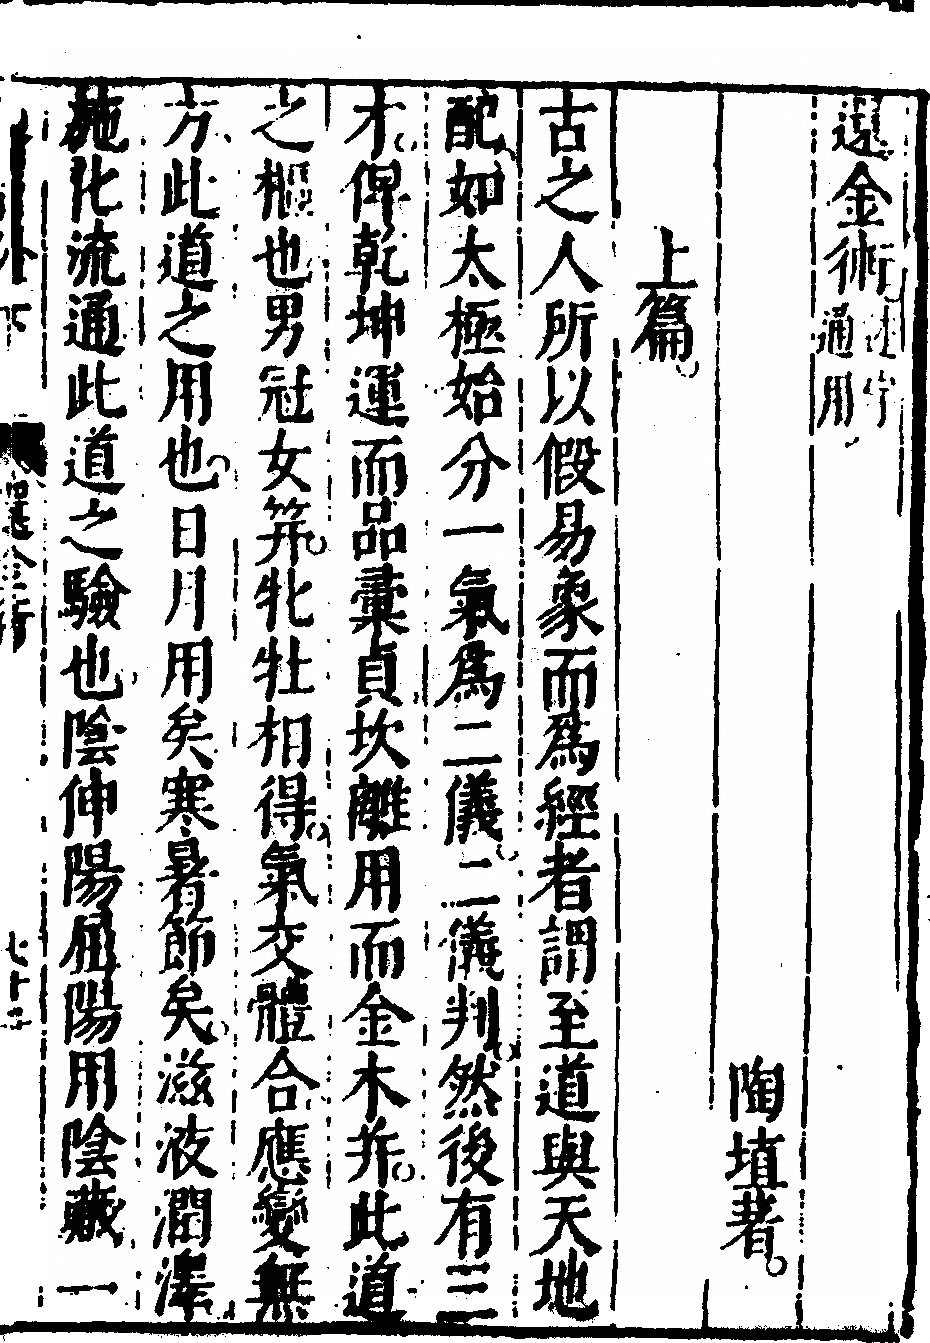 還金術
通用
陶埴著
上篇
古之人所以假易象而爲經者謂至道與天地
配如太極始分一氣爲二儀二儀判然後有三
才俾乾坤運而品彙貞坎離用而金木并此道
之樞也男冠女笄牝牡相得氣交體合應變無
方此道之用也日月用矣寒暑節矣滋液潤澤
施化流通此道之驗也陰伸陽屈陽用陰藏一
還金術
七十